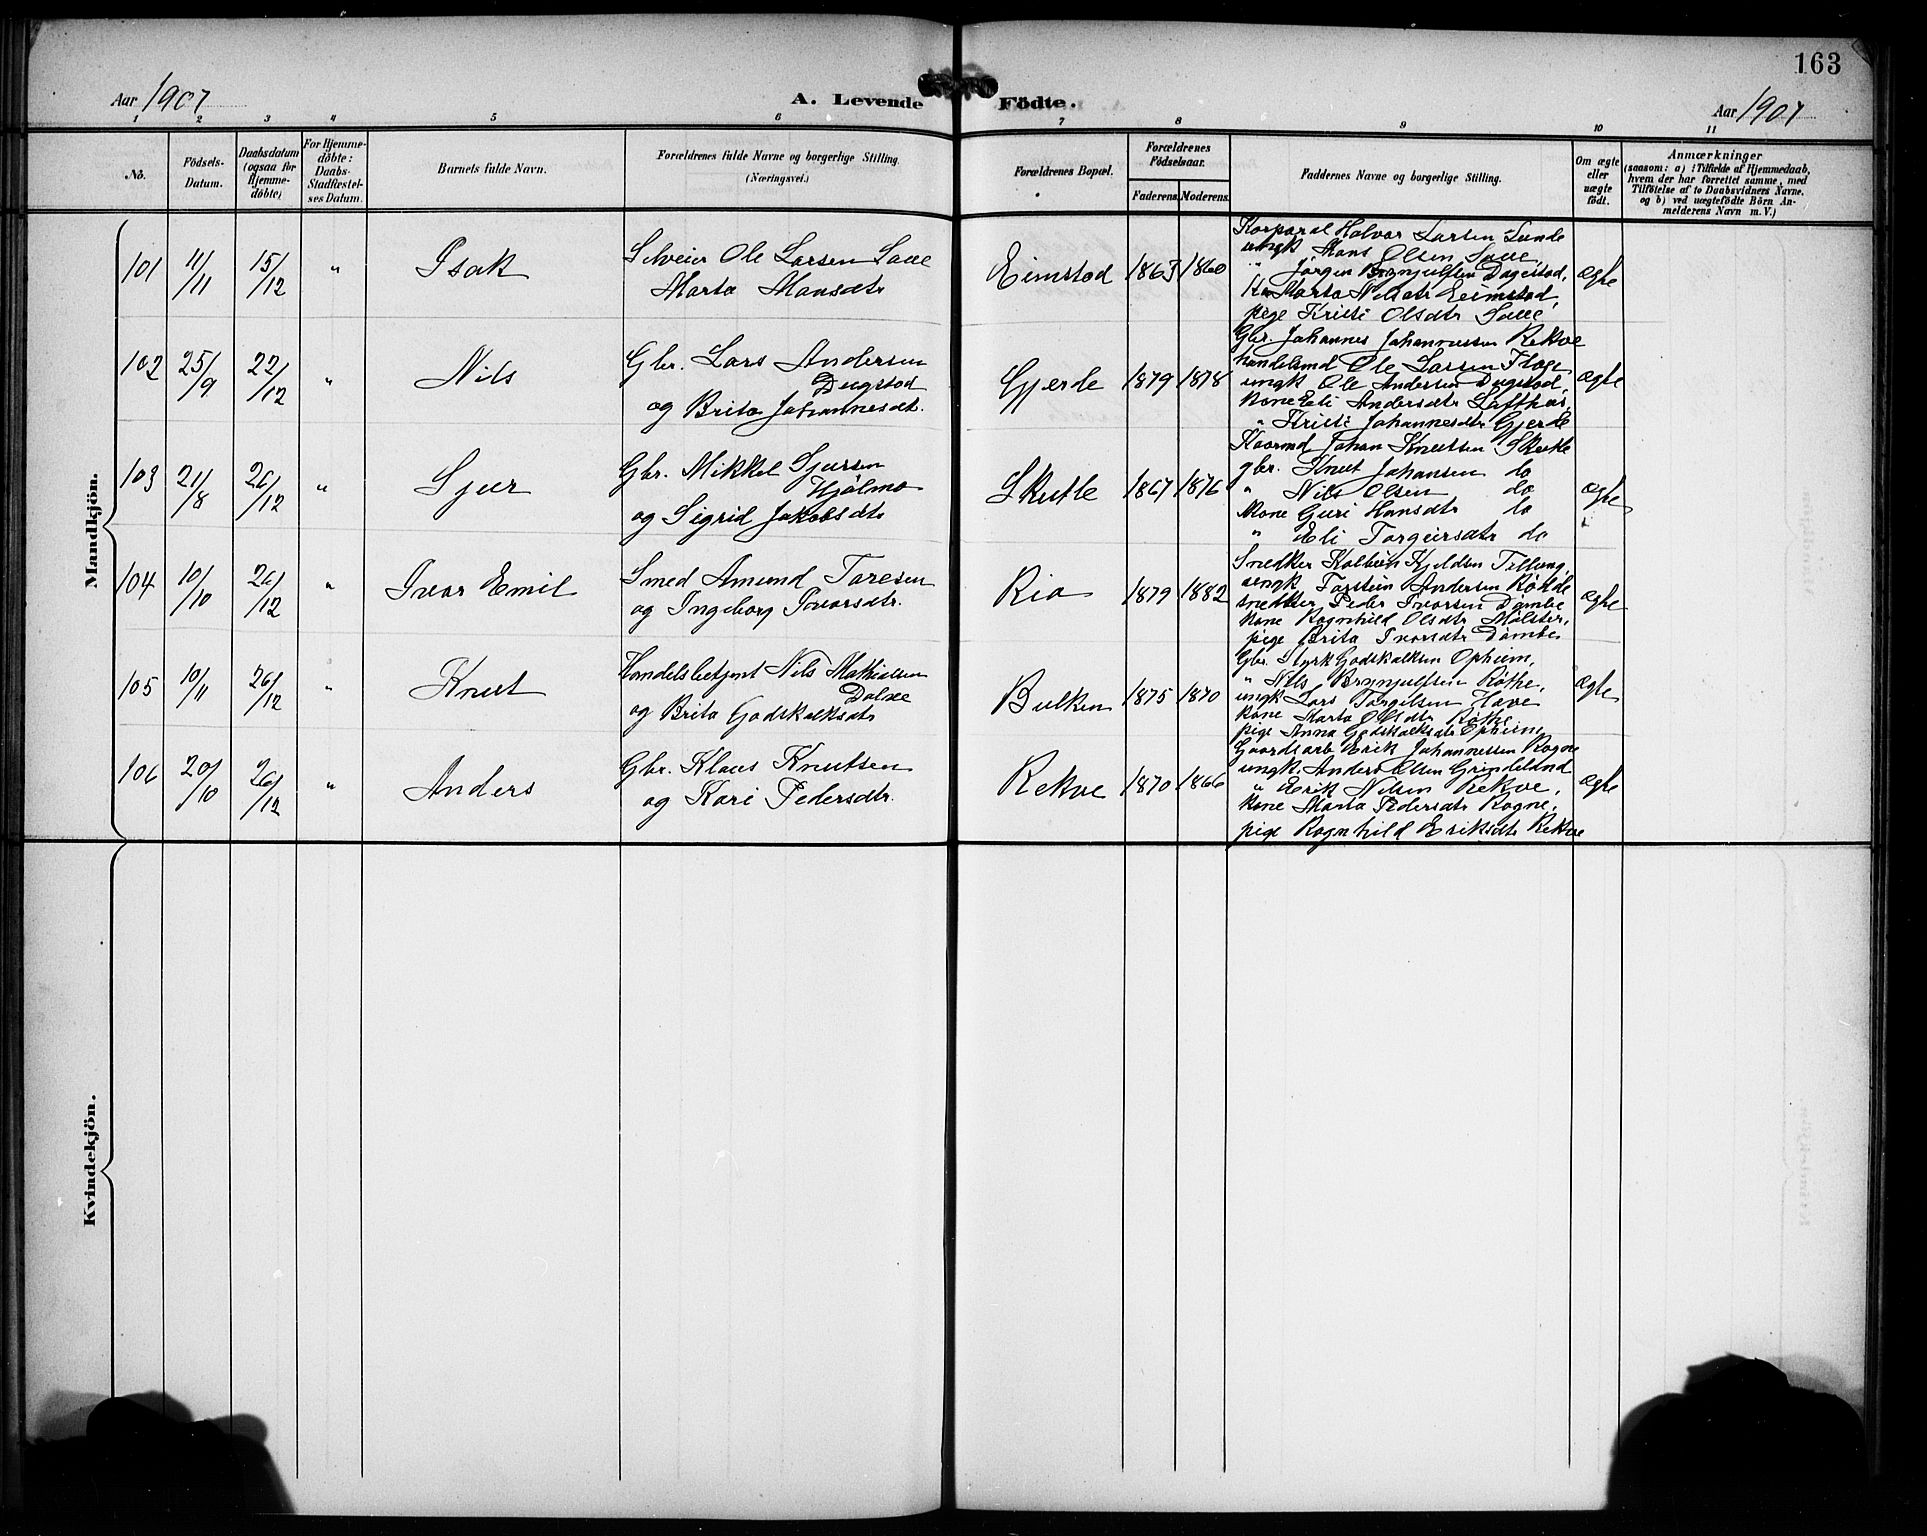 163
Aar 1907
A. Levende Födte.
Aar 1907
1 2 3 4 5 6 7 8 9 10 11
No.
Födsels-Datum.
Daabsdatum (ogsaa for Hjemme-döbte)
For Hjemme-döbte: Daabs-Stadfæstel-ses Datum.
Barnets fulde Navn.
Forældrenes fulde Navne og borgerlige Stilling.
(Næringsvei.)
Forældrenes Bopæl.
Forældrenes Födselsaar.
Faderens. Moderens.
Faddernes Navne og borgerlige Stilling.
Om ægte eller uægte födt.
Anmærkninger
(saasom: a) i Tilfælde af Hjemmedaab, hvem der har forrettet samme, med Tilföielse af to Daabsvidners Navne, og b) ved uægtefödte Börn An-melderens Navn m. V.)
Mandkjön.
101 11/11 15/12 " Isak
Ole Larsen Saue
Marta Mansdtr
Eimstad 1863 1860
Korporal Halvor Larsen Lunde
ungk Mons Olsen Saue,
" Jörgen Brynjulfsen Dagestad,
Marta Nilsdtr Eimstad,
pige Kristi Olsdtr Saue
ægte
102 25/9 22/12 " Nils
Gbr. Lars Andersen
Dugstad
og Brita Johannesdt.
Gjerde 1879 1878
Gbr. Johannes Johannessen Rekve
handelsmd Ole Larsen Flage
ungk Ole Andersen Dugstad,
kone Eli Andersdtr Lofthus,
" Kristi Johannesdtr Gjerde
ægte
103 21/8 26/12 " Sjur
Gbr. Mikkel Sjursen
Hjölmo
og Sigrid Jakobsdtr
Skutle 1867 1876
Kaarmd Johan Knutsen Skutle
gbr. Knut Johansen do
" Nils Olsen do
kone Guri Hansdtr do
" Eli Torgeirsdtr do
ægte
104 10/10 26/12 " Ivar Emil
Smed Amund Toresen
og Ingeborg Ivarsdtr.
Rio 1879 1882
Snedker Kolbein Kjeldsen Tillung,
ungk Torstein Andersen Rokne
snedker Peder Ivarsen Dömbe
kone Ragnhild Olsdtr Mölster,
pige Brita Ivarsdtr Dömbe
ægte
105 10/11 26/12 " Knut
Handelsbetjent Nils Mathiassen
Dalve
og Brita Godskalksdtr
Bulken 1875 1870
Gbr. Styrk Godskalksen Opheim,
" Nils Brynjulfsen Röthe,
ungk Lars Torgilsen Hove
kone Marta Olsdtr Röthe
pige Anna Godskalksdtr Opheim,
ægte
106 20/10 26/12 " Anders
Gbr. Klaus Knutsen
og Kari Pedersdtr.
Rekve 1870 1866
Gaardsarb Erik Johannessen Rogne
ungk. Anders Olsen Grindeland
" Erik Nilsen Rekve,
kone Marta Pedersdtr Rogne,
pige Ragnhild Eriksdtr Rekve
ægte
Kvindekjön.